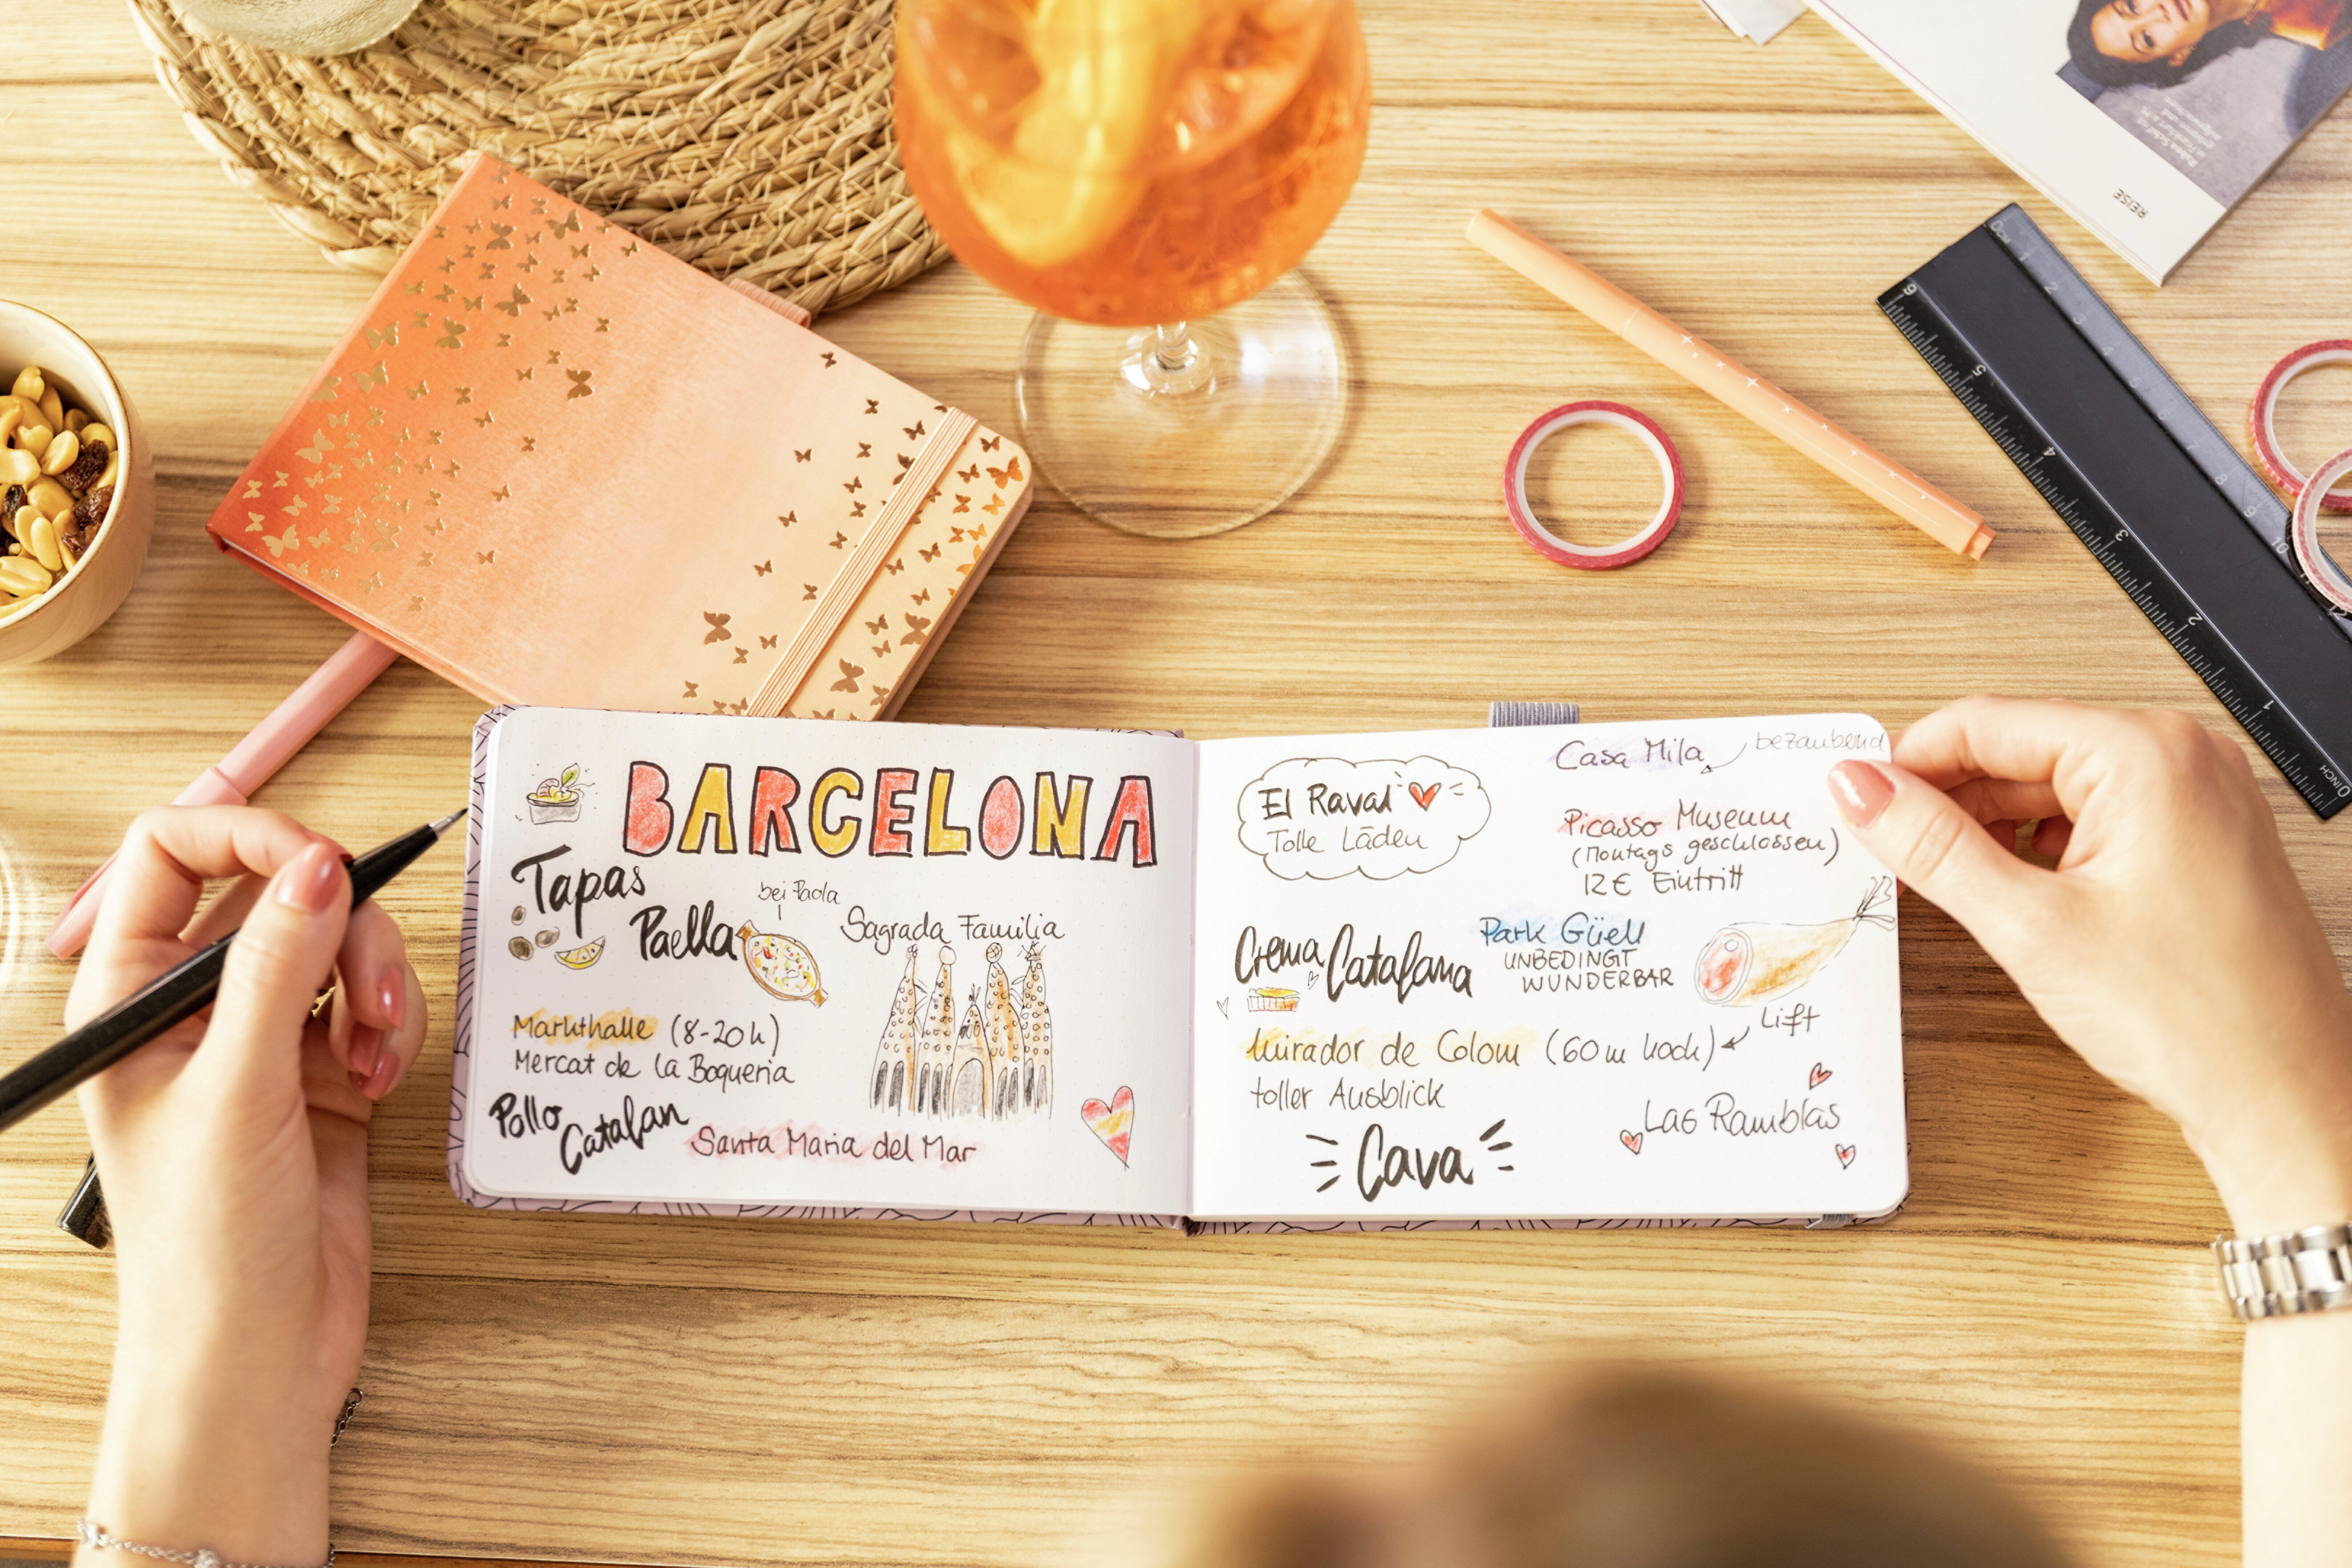 BARCELONA
Tapas
Paella
bei Paola
Sagrada Familia
Markthalle (8-20h)
Mercat de la Boqueria
Pollo
Catalan
Santa Maria del Mar
El Raval
Tolle Läden
Casa Mila
bezaubernd
Picasso Museum
(Montags geschlossen)
12€ Eintritt
Crema Catalana
Park Güell
UNBEDINGT
WUNDERBAR
Mirador de Colom (60m hoch)
Lift
toller Ausblick
Cava
Las Ramblas
REISE
0 1 2 3 4 5 6 7 8 9 10
6 5 4 3 2 1 0 INCH